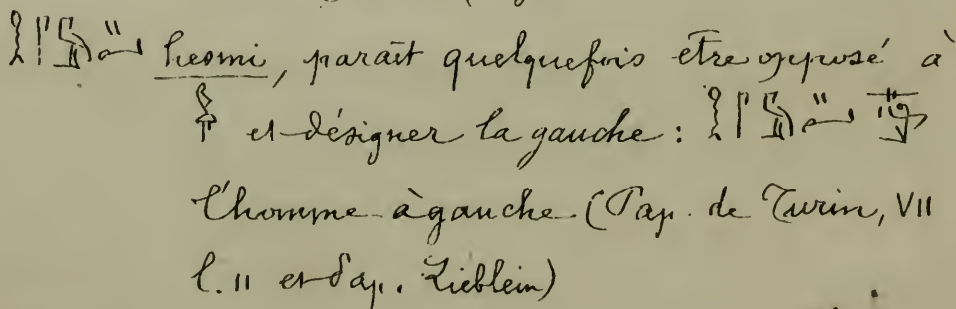 hesmi, paraît quelquefois être opposé à
et désigner la gauche :
l'homme à gauche (Pap. de Turin, VII
l. 11 et Pap. Lieblein)